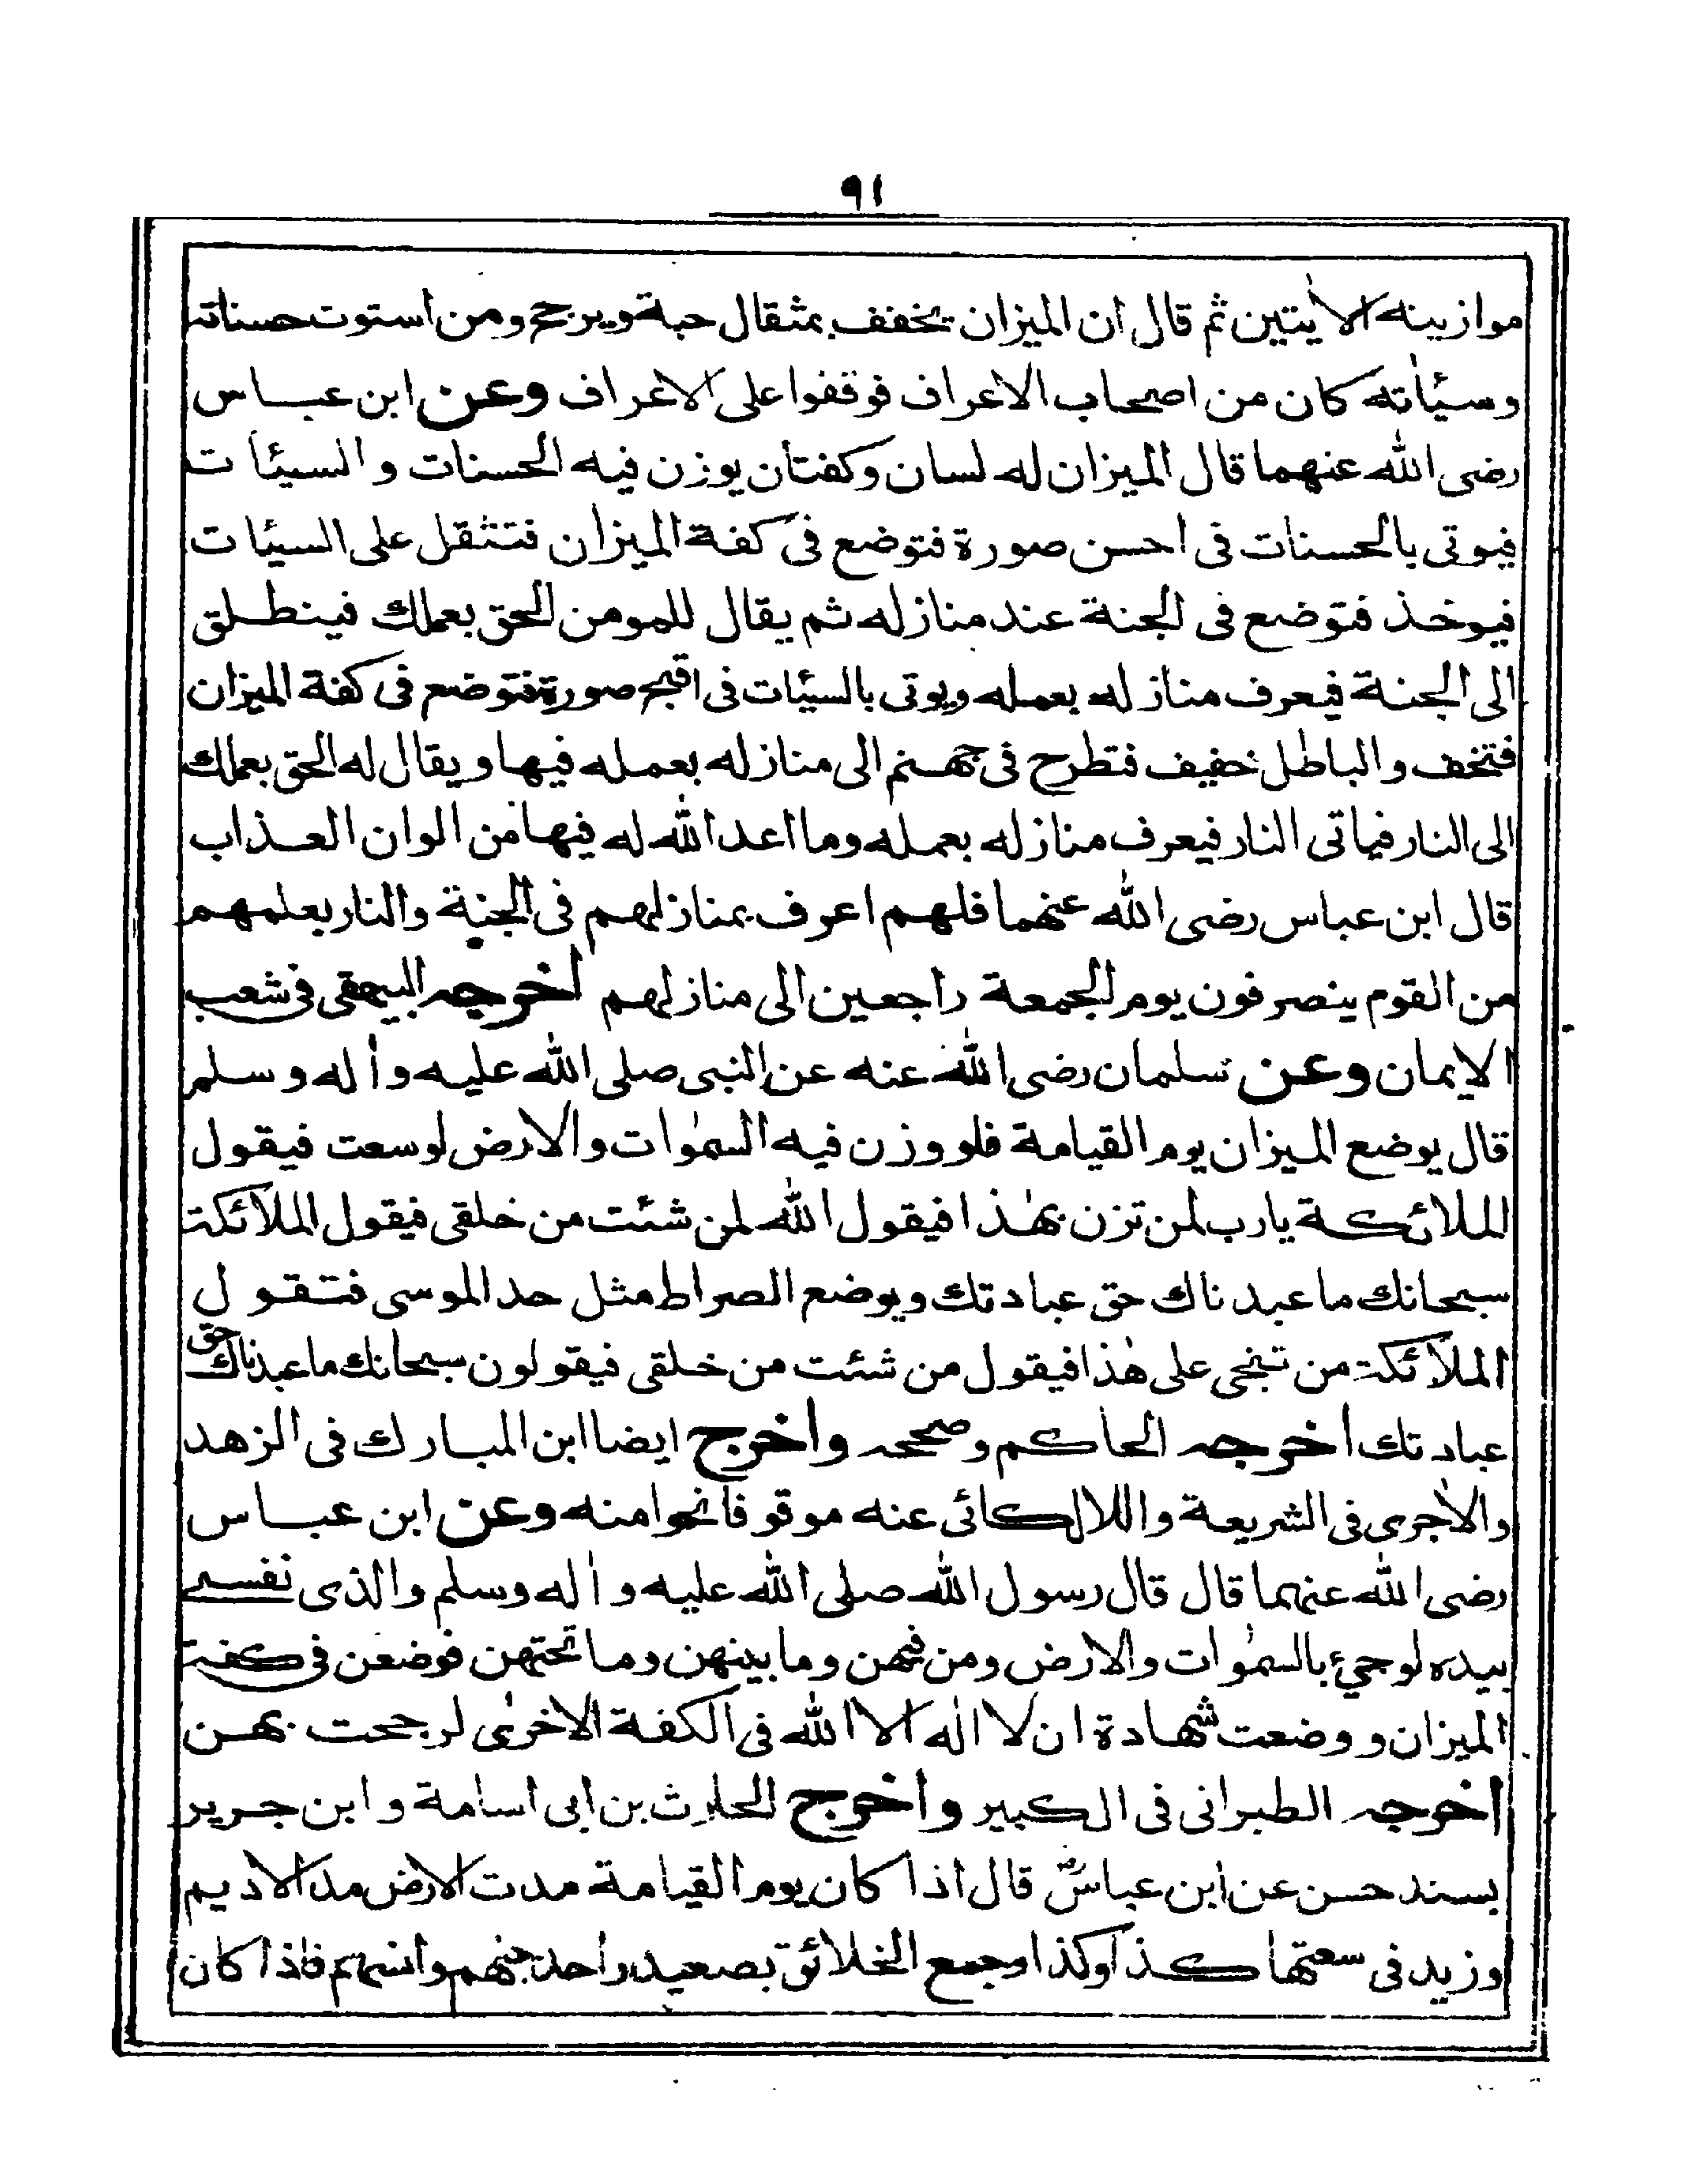 ٩١
موازينه الاٰيتين ثم قال ان الميزان يخفف بمثقال حبة ويرجح ومن استوت حسناته
وسيّاٰته كان من اصحاب الاعراف فوقفوا على الاعراف وعن ابن عباس
رضى الله عنهما قال الميزان له لسان وكفتان يوزن فيه الحسنات والسيئات
فيوتى بالحسنات فى احسن صورة فتوضع فى كفة الميزان فتثقل على السيئات
فيوخذ فتوضع فى الجنة عند منازله ثم يقال للمومن الحق بعملك فينطلق
الى الجنة فيعرف منازله بعمله ويوتى بالسيّئات فى اقبح صورة فتوضع فى كفة الميزان
فتخف والباطل خفيف فتطرح فى جهنم الى منازله بعمله فيها ويقال له الحق بعملك
الى النار فياتى النار فيعرف منازله بعمله وما اعد الله له فيها من الوان العذاب
قال ابن عباس رضى الله عنهما فلهم اعرف بمنازلهم فى الجنة والنار بعلمهم
من القوم ينصرفون يوم الجمعة راجعين الى منازلهم اخرجه البيهقى فى شعب
الايمان وعن سلمان رضى الله عنه عن النبى صلى الله عليه واٰله وسلم
قال يوضع الميزان يوم القيامة فلو وزن فيه السمٰوات والارض لوسعت فيقول
الملائكة يارب لمن تزن بهٰذا فيقول الله لمن شئت من خلقى فيقول الملائكة
سبحانك ما عبدناك حق عبادتك ويوضع الصراط مثل حد الموسى فتقول
الملائكة من تنجى على هٰذا فيقول من شئت من خلقى فيقولون سبحانك ما عبدناك حق
عبادتك اخرجه الحاكم وصححه واخرج ايضا ابن المبارك فى الزهد
والاٰجرى فى الشريعة واللالكائى عنه موقوفا نحوا منه وعن ابن عباس
رضى الله عنهما قال قال رسول الله صلى الله عليه واٰله وسلم والذى نفسى
بيده لوجىء بالسمٰوات والارض ومن فيهن وما بينهن وما تحتهن فوضعن فى كفة
الميزان ووضعت شهادة ان لا اله الا الله فى الكفة الاخرى لرجحت بهن
اخرجه الطبرانى فى الكبير واخرج الحارث بن ابى اسامة وابن جرير
بسند حسن عن ابن عباسؓ قال اذا كان يوم القيامة مدت الارض مد الاديم
وزيد فى سعتها كذا وكذا وجمع الخلائق بصعيد واحد جنهم وانسهم فاذا كان